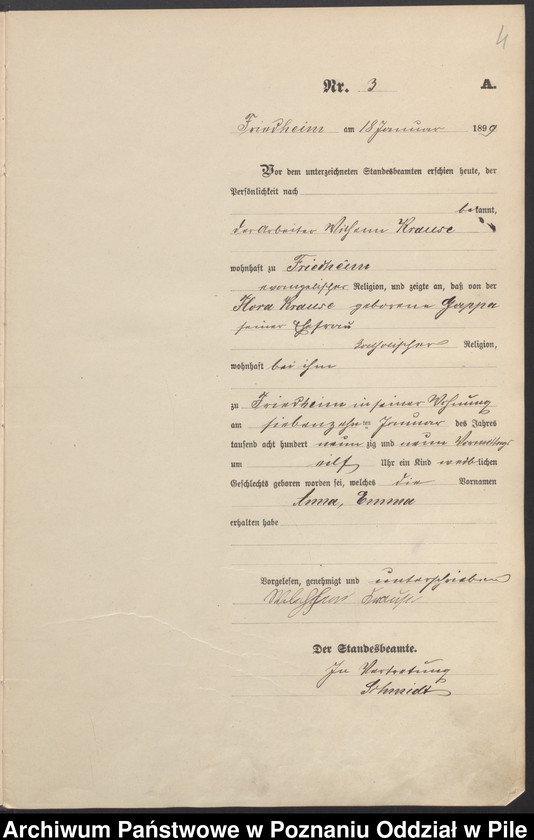 4
Nr. 3 A.
Friedheim am 18 Januar 1899
Vor dem unterzeichneten Standesbeamten erschien heute, der
Persönlichkeit nach
bekannt,
der Arbeiter Wilhelm Krause
wohnhaft zu Friedheim
evangelischer Religion, und zeigte an, daß von der
Flora Krause geborene Gappa
seiner Ehefrau
katholischer Religion,
wohnhaft bei ihm
zu Friedheim in seiner Wohnung
am siebenzehnten Januar des Jahres
tausend acht hundert neunzig und neun Vormittags
um eilf Uhr ein Kind weiblichen
Geschlechts geboren worden sei, welches die Vornamen
Anna, Emma
erhalten habe
Vorgelesen, genehmigt und unterschrieben
Wilhelm Krause
Der Standesbeamte.
In Vertretung
Schmidt
Archiwum Państwowe w Poznaniu Oddział w Pile